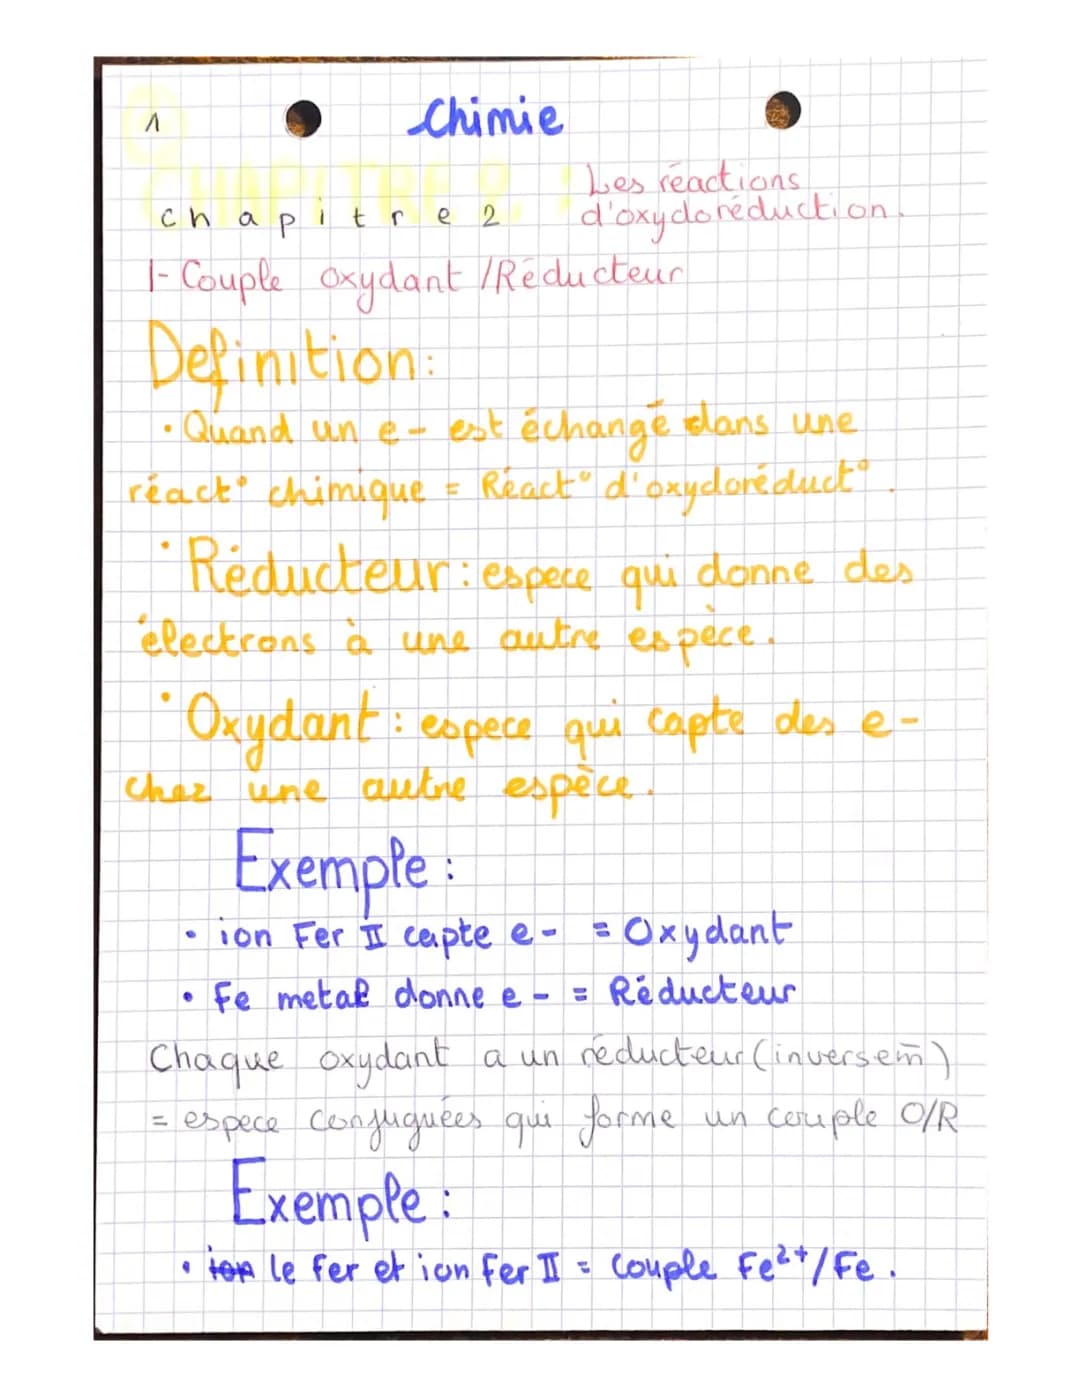 1
Chimie
chapitre 2
Les réactions
d'oxydoréduction.
1- Couple oxydant /Réducteur
Definition:
• Quand un e- est échangé dans une
réact° chimique = Réact° d'oxydoréduct°.
• Réducteur: espece qui donne des
électrons à une autre espèce.
• Oxydant: espece qui capte des e-
chez une autre espèce.
Exemple:
• ion Fer II capte e- = Oxydant
• Fe metal donne e- = Réducteur
Chaque oxydant a un réducteur (inversem̄)
= espece conjuguées qui forme un couple O/R
Exemple:
• ion le Fer et ion Fer II = Couple Fe²⁺/Fe.